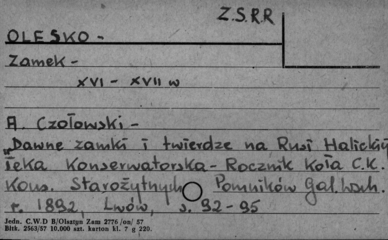 Z.S.R.R
OLESKO -
Zamek -
XVI - XVII w
A. Czołowski -
"Dawne zamki i twierdze na Rusi Halickiej
Teka Konserwatorska - Rocznik Koła C.K.
Kons. Starożytnych Pomników Gal. wsch.
r. 1892, Lwów, s. 92-95
Jedn. C.W.D B/Olsztyn Zam 2776 /on/ 57
Bltk. 2563/57 10.000 szt. karton kl. 7 g 220.